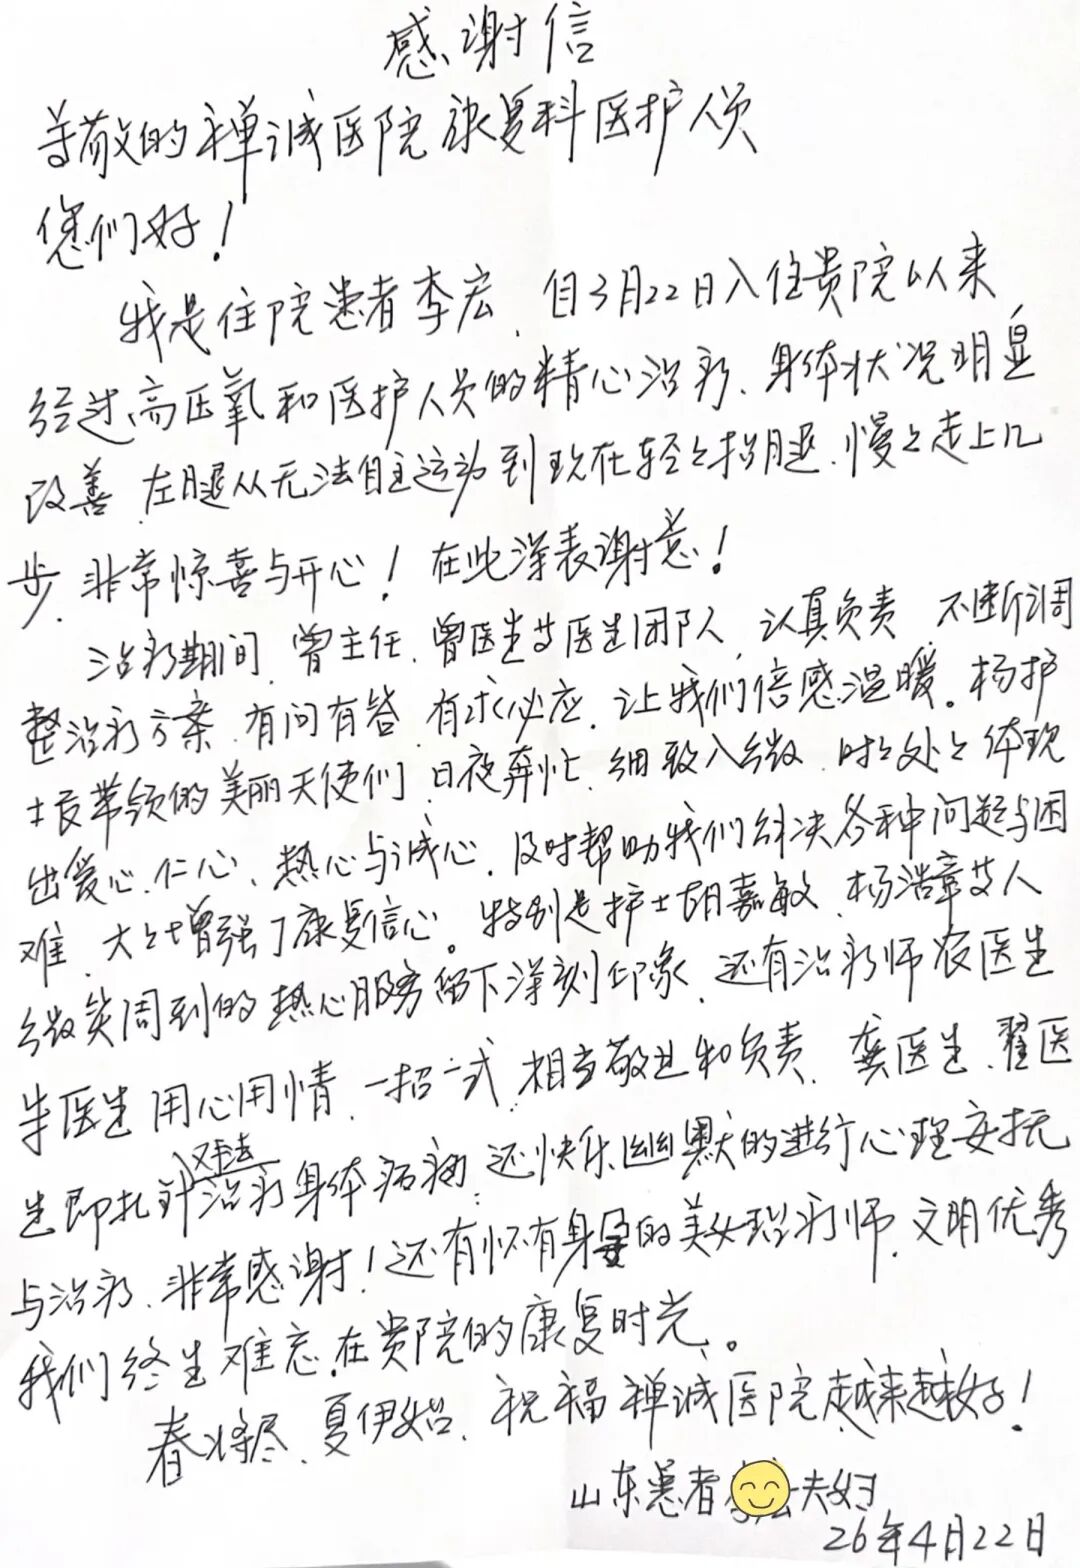 感谢信
尊敬的禅诚医院康复科医护人员
您们好！
我是住院患者李宏，自3月22日入住贵院以来
经过高压氧和医护人员的精心治疗、身体状况明显
改善，左腿从无法自主运动到现在轻轻抬腿、慢慢走上几
步，非常惊喜与开心！在此深表谢意！
治疗期间，曾主任、曾医生艾医生团队，认真负责，不断调
整治疗方案，有问有答，有求必应，让我们倍感温暖。杨护
士长带领的美丽天使们，日夜奔忙，细致入微，时时处处体现
出爱心、仁心、热心与诚心，及时帮助我们解决各种问题与困
难，大大增强了康复信心。特别是护士胡嘉敏、杨浩章艾人
微笑周到的热心服务留下深刻印象，还有治疗师农医生
牟医生用心用情，一招一式，相当敬业和负责，龚医生、翟医
生即扎针又手法治疗身体病痛，还快乐幽默的进行心理安抚
与治疗、非常感谢！还有怀有身孕的美女理疗师，文明优秀
我们终生难忘在贵院的康复时光。
春将尽，夏伊始，祝福禅诚医院越来越好！
山东患者 夫妇
26年4月22日